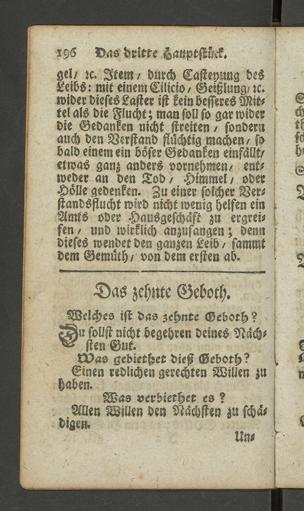 196 Das dritte Hauptstück.
gel/ ꝛc. Item, durch Casteyung des
Leibs: mit einem Cilicio, Geißlung/ ꝛc.
wider dieses Laster ist kein besseres Mit-
tel als die Flucht; man soll so gar wider
die Gedanken nicht streiten, sondern
auch den Verstand flüchtig machen, so
bald einem ein böser Gedanken einfällt/
etwas ganz anders vornehmen, ent-
weder an den Tod, Himmel, oder
Hölle gedenken. Zu einer solcher Ver-
standsflucht wird nicht wenig helfen ein
Amts oder Hausgeschäft zu ergrei-
fen, und wirklich anzufangen; denn
dieses wendet den ganzen Leib, sammt
dem Gemüth, von dem ersten ab.
Das zehnte Geboth.
Welches ist das zehnte Geboth?
Du sollst nicht begehren deines Näch-
sten Gut.
Was gebiethet dieß Geboth?
Einen redlichen gerechten Willen zu
haben.
Was verbiethet es?
Allen Willen den Nächsten zu schä-
digen.
Un-